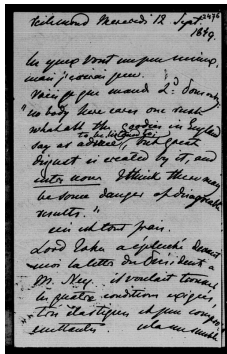 Richmond Mercredi 12 Sept. 2476
1849.
Les yeux vont un peu mieux,
mais j'écris peu.
Voici ce que mande
"nobody here cares one rush
what all the goodies in England
say as to but great
disgust is created by it, and
entre nous I think there may
be some danger of disagreeable
results."
ceci est très vrai.
Lord John a épluché devant
moi la lettre du Président à
M. Ney. il voulait trouver
les quatre conditions exigées,
très élastiques et peu compro-
mettantes cela me semble